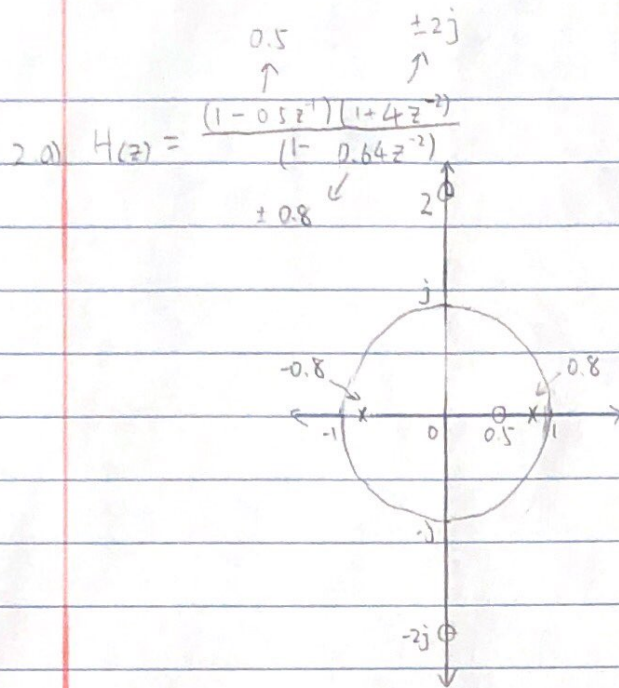 0.5 ±2j
↑ ↗
2 a) H(z) = (1 - 0.5z⁻¹)(1 + 4z⁻²)
(1 - 0.64z⁻²)
↙
± 0.8
2
j
-0.8 0.8
-1 0 0.5 1
-j
-2j